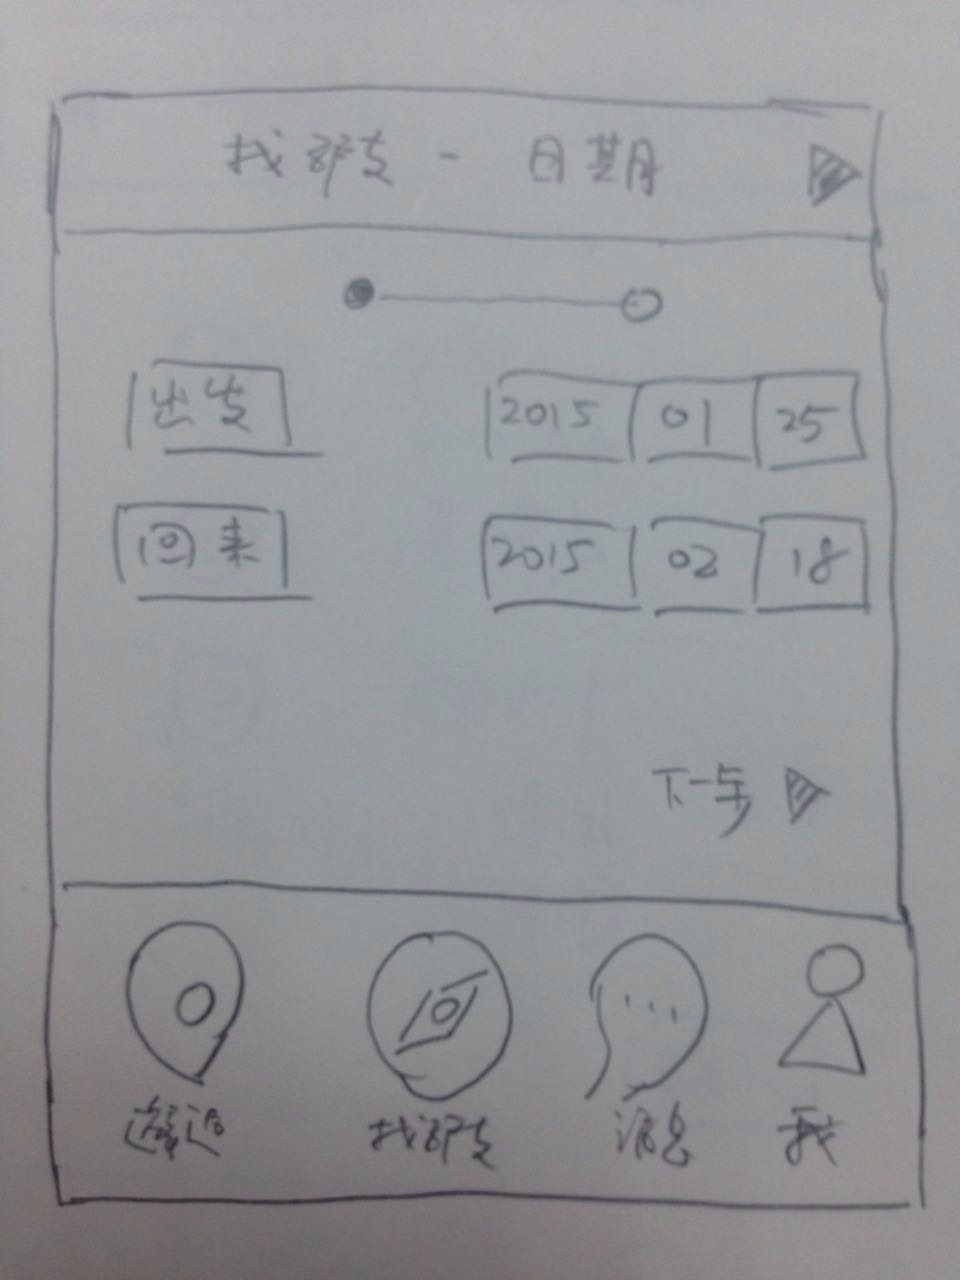 找驴友 - 日期
出发 2015 01 25
回来 2015 02 18
下一步
邂逅 找驴友 消息 我